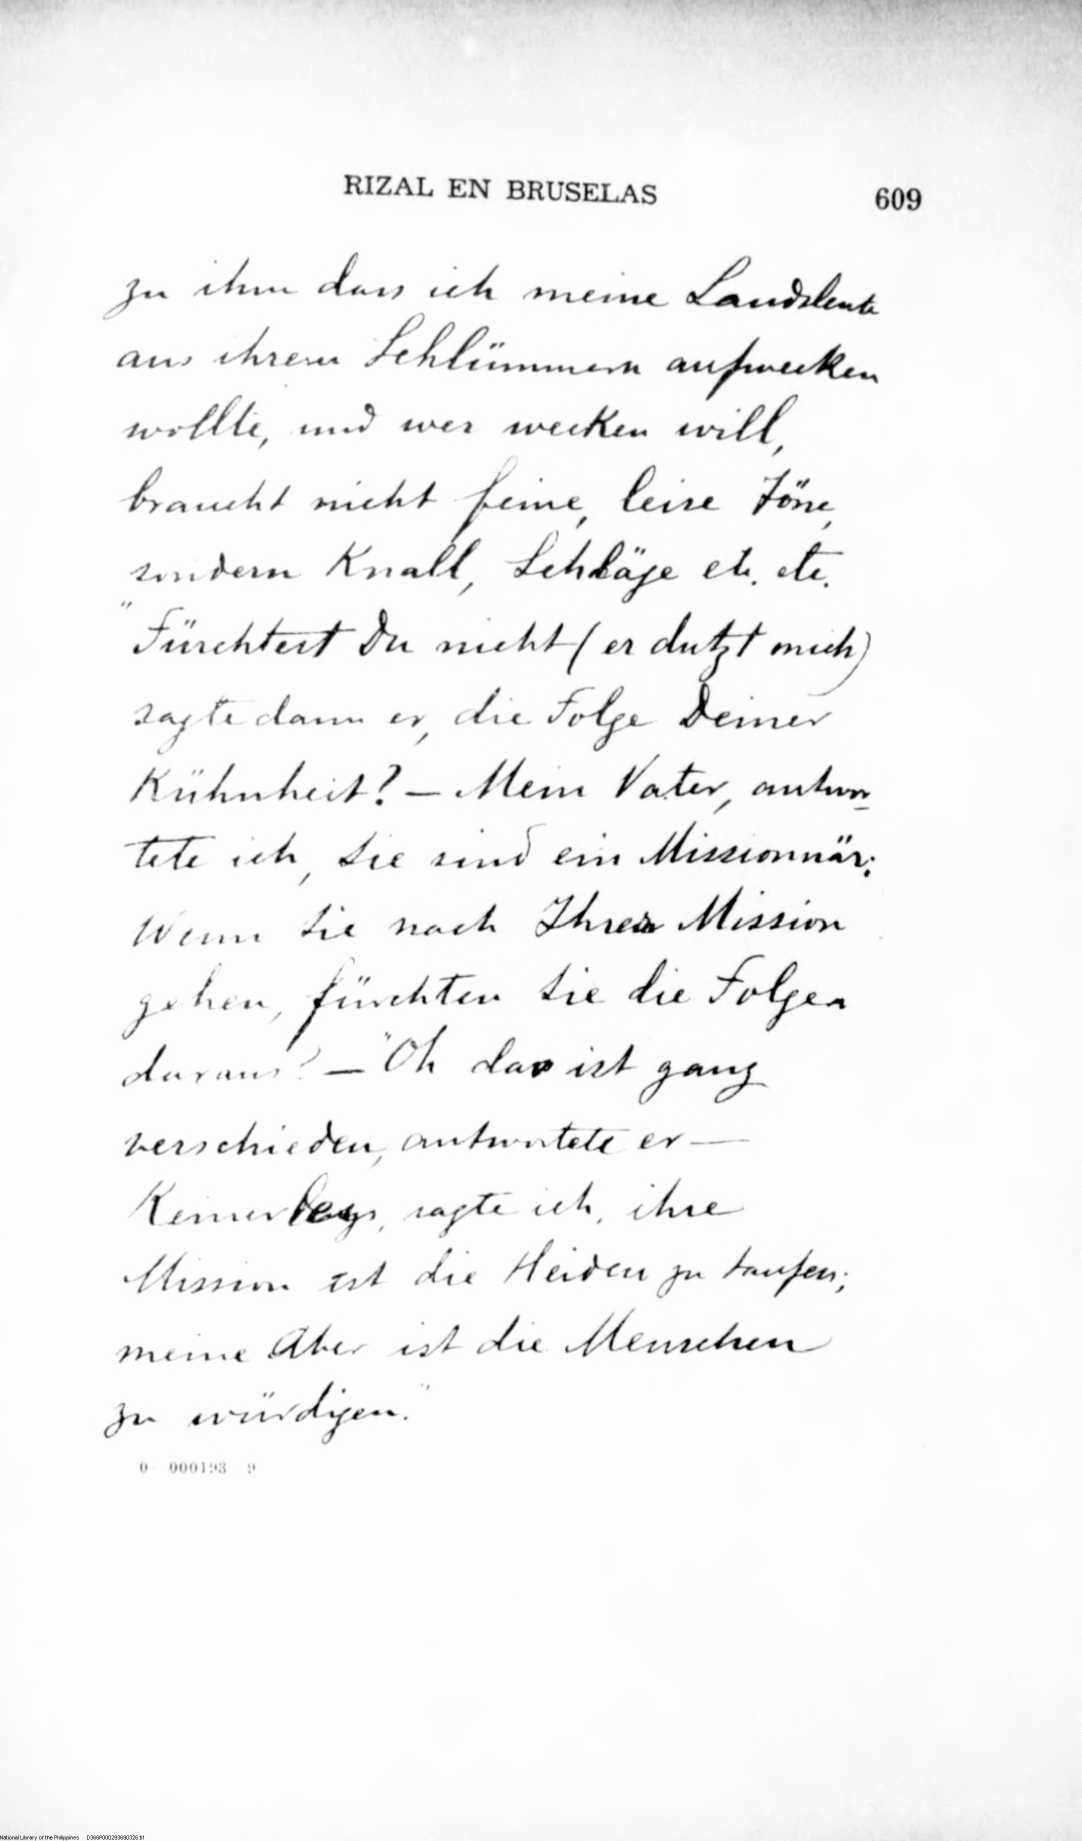 RIZAL EN BRUSELAS 609
zu ihm dass ich meine Landsleute
aus ihrem Schlümmern aufwecken
wollte, und wer wecken will,
braucht nicht feine, leise Töne,
sondern Knall, Schläge etc. etc.
"Fürchtest Du nicht (er dutzt mich)
sagte dann er, die Folge Deiner
Kühnheit? — Mein Vater, antwor-
tete ich, Sie sind ein Missionnär;
Wenn Sie nach Ihrer Mission
gehen, fürchten Sie die Folgen
daraus? — "Oh das ist ganz
verschieden, antwortete er —
sagte ich, ihre
Mission ist die Heiden zu taufen;
meine Aber ist die Menschen
zu würdigen."
0 000193 9
National Library of the Philippines